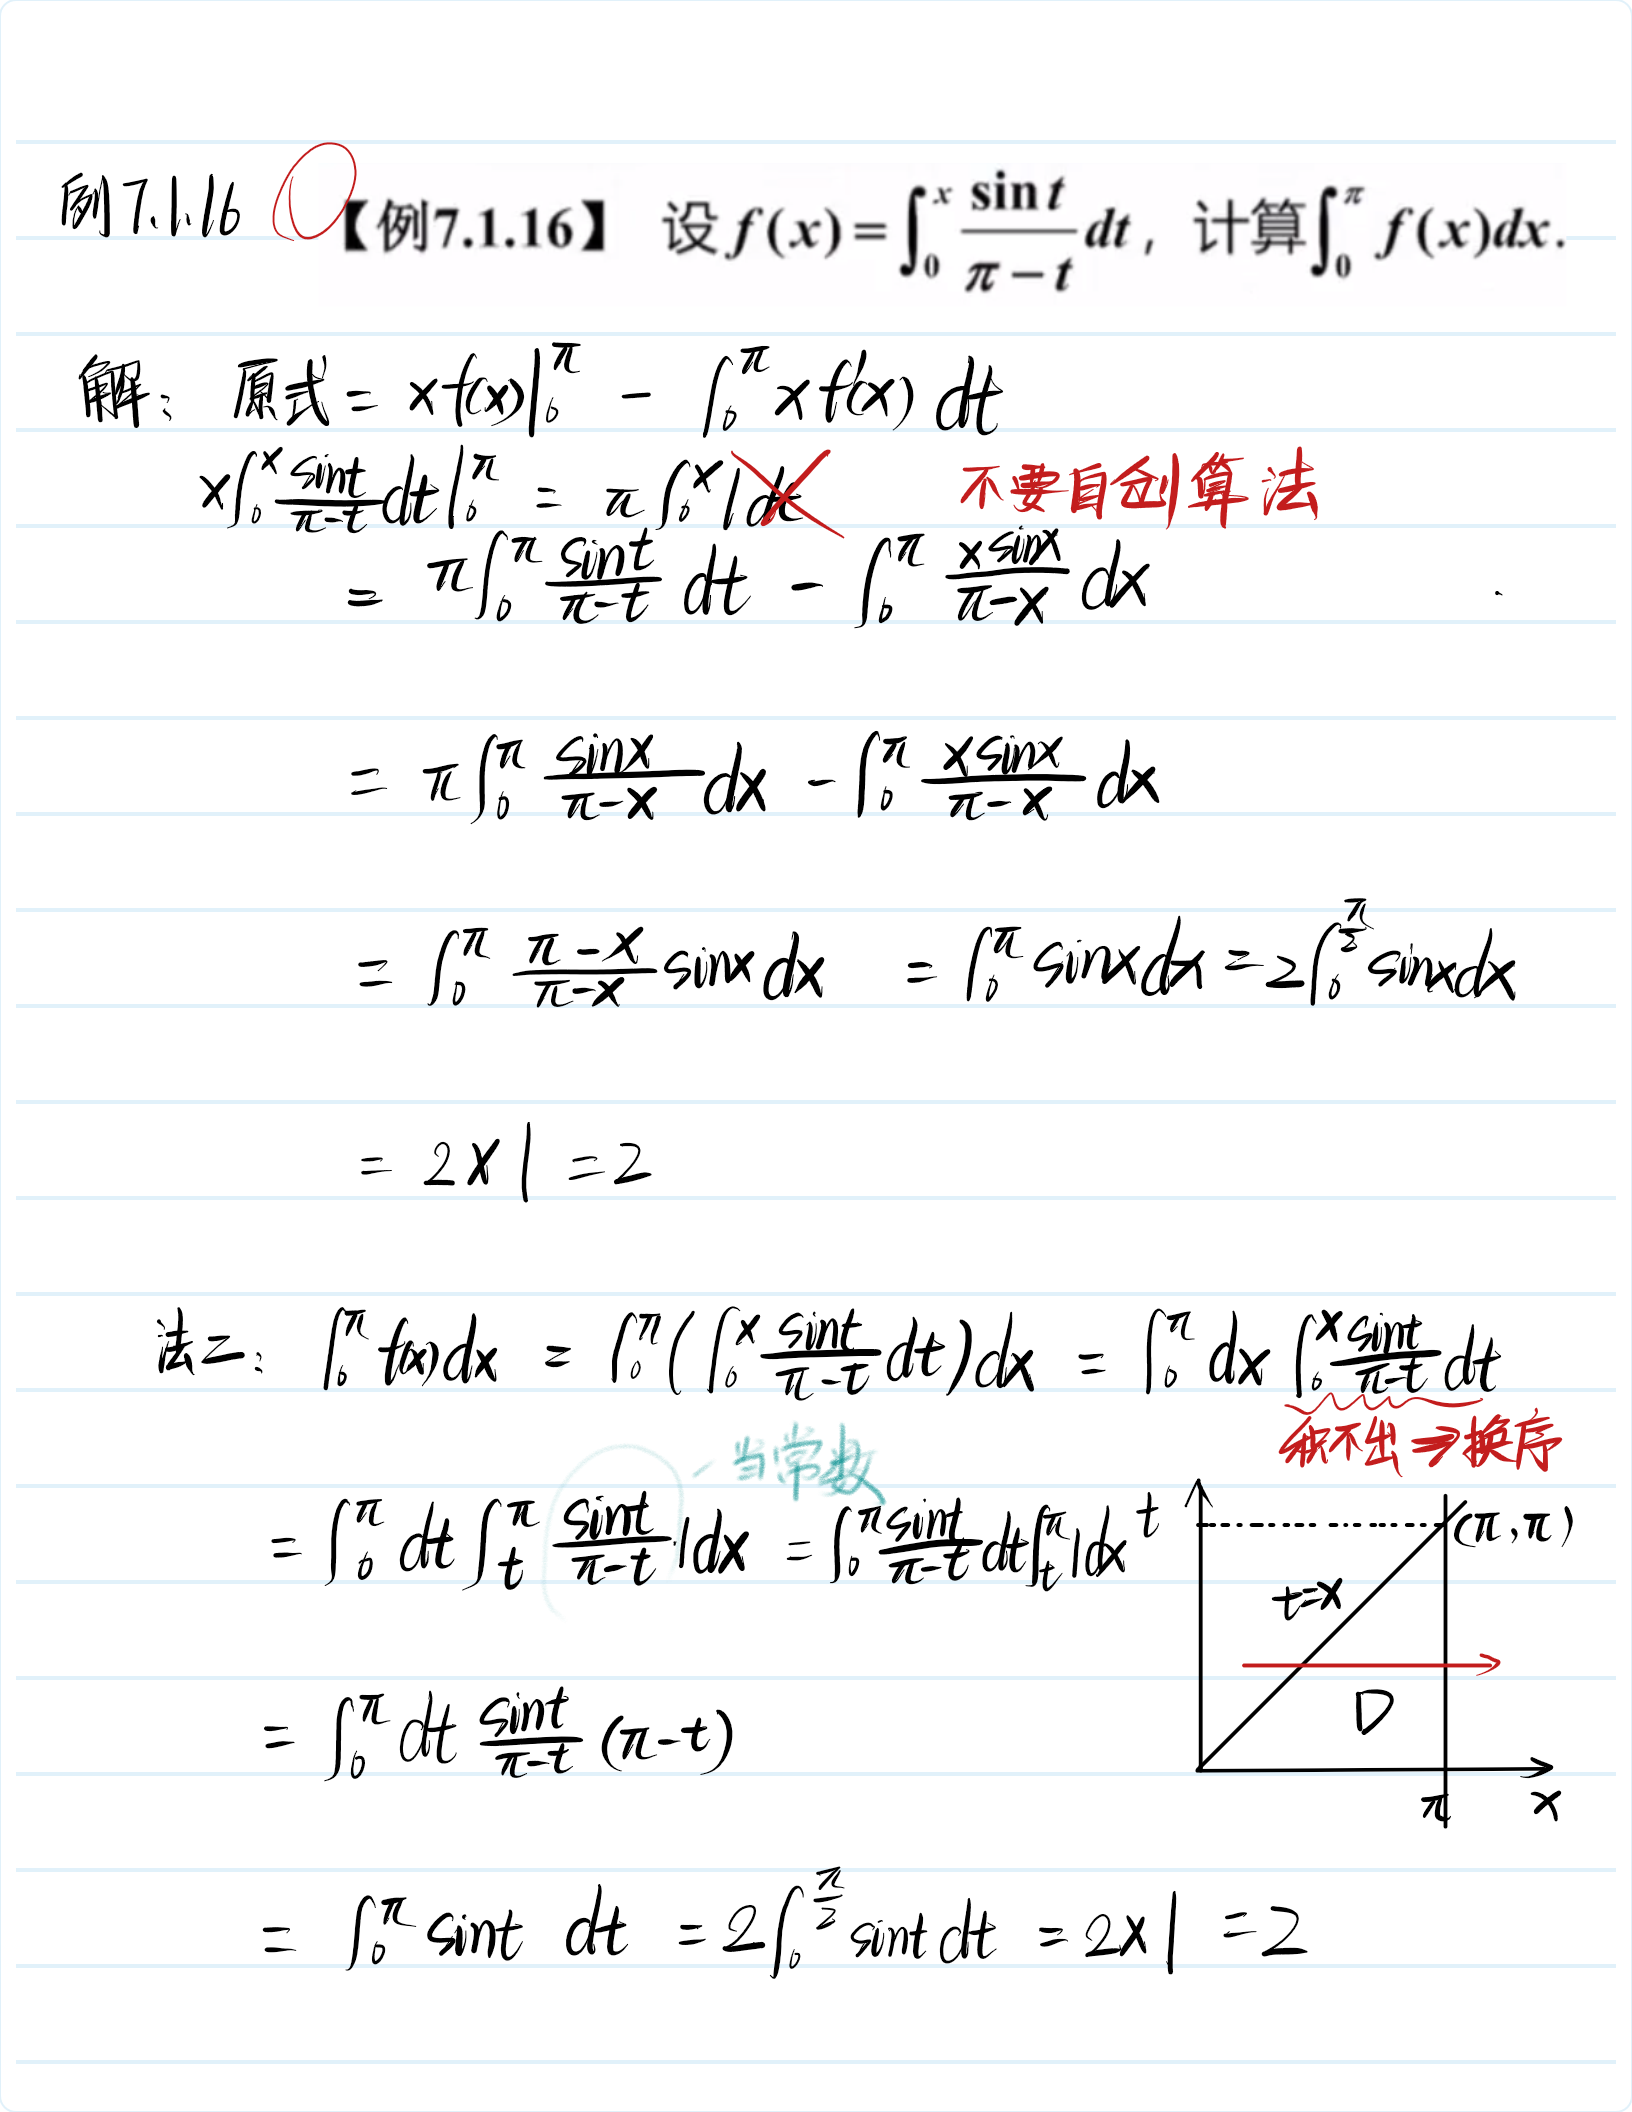 例7.1.16 【例7.1.16】 设 f(x)=∫₀ˣ sin t/(π−t) dt, 计算∫₀^π f(x)dx.
解: 原式 = xf(x)|₀^π − ∫₀^π xf'(x) dt
x∫₀ˣ sint/(π−t) dt|₀^π = π∫₀ˣ 1dt 不要自创算法
= π∫₀^π sint/(π−t) dt − ∫₀^π xsinx/(π−x) dx
= π∫₀^π sinx/(π−x) dx − ∫₀^π xsinx/(π−x) dx
= ∫₀^π (π−x)/(π−x) sinxdx = ∫₀^π sinxdx = 2∫₀^(π/2) sinxdx
= 2×1 = 2
法二: ∫₀^π f(x)dx = ∫₀^π(∫₀ˣ sint/(π−t) dt)dx = ∫₀^π dx∫₀ˣ sint/(π−t) dt
积不出⇒换序
当常数
= ∫₀^π dt∫ₜ^π sint/(π−t)·1dx = ∫₀^π sint/(π−t) dt∫ₜ^π 1dx
t
(π,π)
t=x
D
π
x
= ∫₀^π dt sint/(π−t) (π−t)
= ∫₀^π sint dt = 2∫₀^(π/2) sintdt = 2×1 = 2